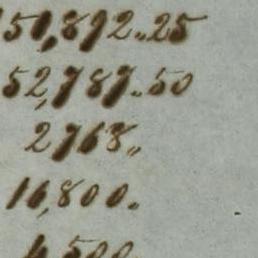 51,892.25
52,787.50
2,768.,
16,800.
4,500.